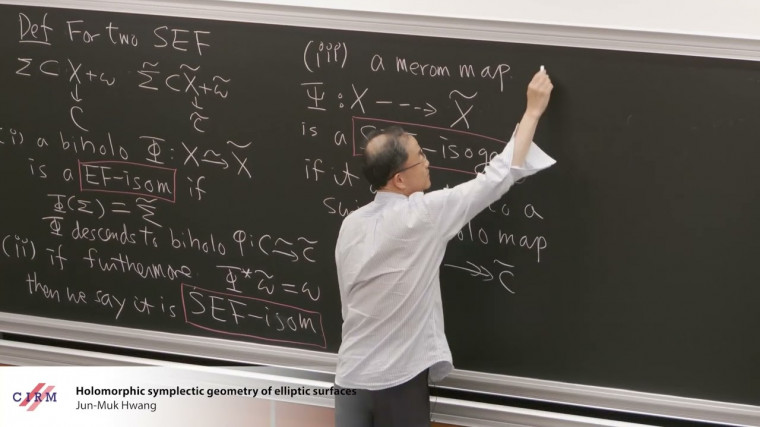 Def For two SEF
Σ ⊂ X + ω  Σ̃ ⊂ X̃ + ω̃
↓ ↓
C C̃
(i) a biholo Φ : X ≅ X̃
is a EF-isom if
Φ(Σ) = Σ̃
Φ descends to biholo φ : C ≅ C̃
(ii) if furthermore Φ* ω̃ = ω
then we say it is SEF-isom
(iii) a merom map
Ψ : X ---> X̃
is a
if it
to a
map
↠ C̃
CIRM
Holomorphic symplectic geometry of elliptic surfaces
Jun-Muk Hwang